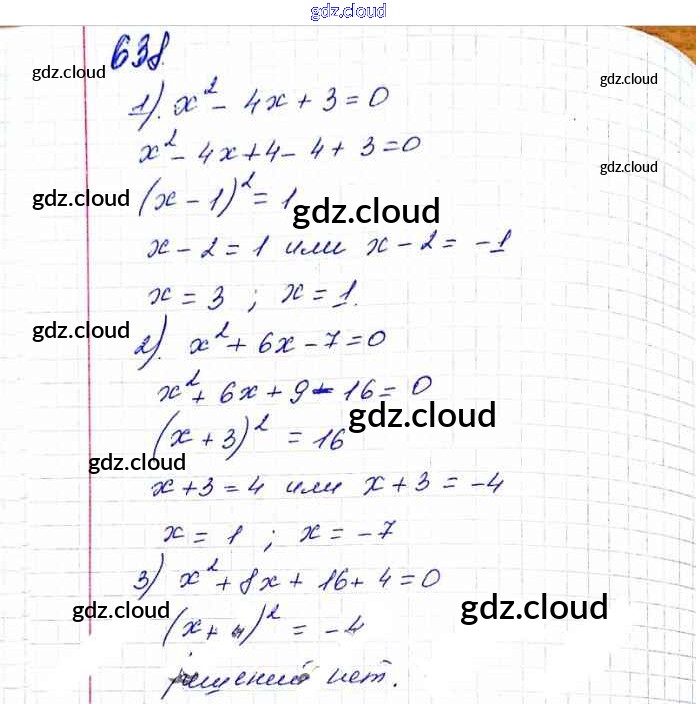 gdz.cloud
638.
gdz.cloud
gdz.cloud
1). x² - 4x + 3 = 0
x² - 4x + 4 - 4 + 3 = 0
gdz.cloud
gdz.cloud
(x - 1)² = 1
gdz.cloud
x - 2 = 1 или x - 2 = -1
x = 3 ; x = 1.
gdz.cloud
2). x² + 6x - 7 = 0
x² + 6x + 9 - 16 = 0
gdz.cloud
(x + 3)² = 16
gdz.cloud
x + 3 = 4 или x + 3 = -4
x = 1 ; x = -7
3) x² + 8x + 16 + 4 = 0
gdz.cloud
(x + 4)² = -4
gdz.cloud
решений нет.